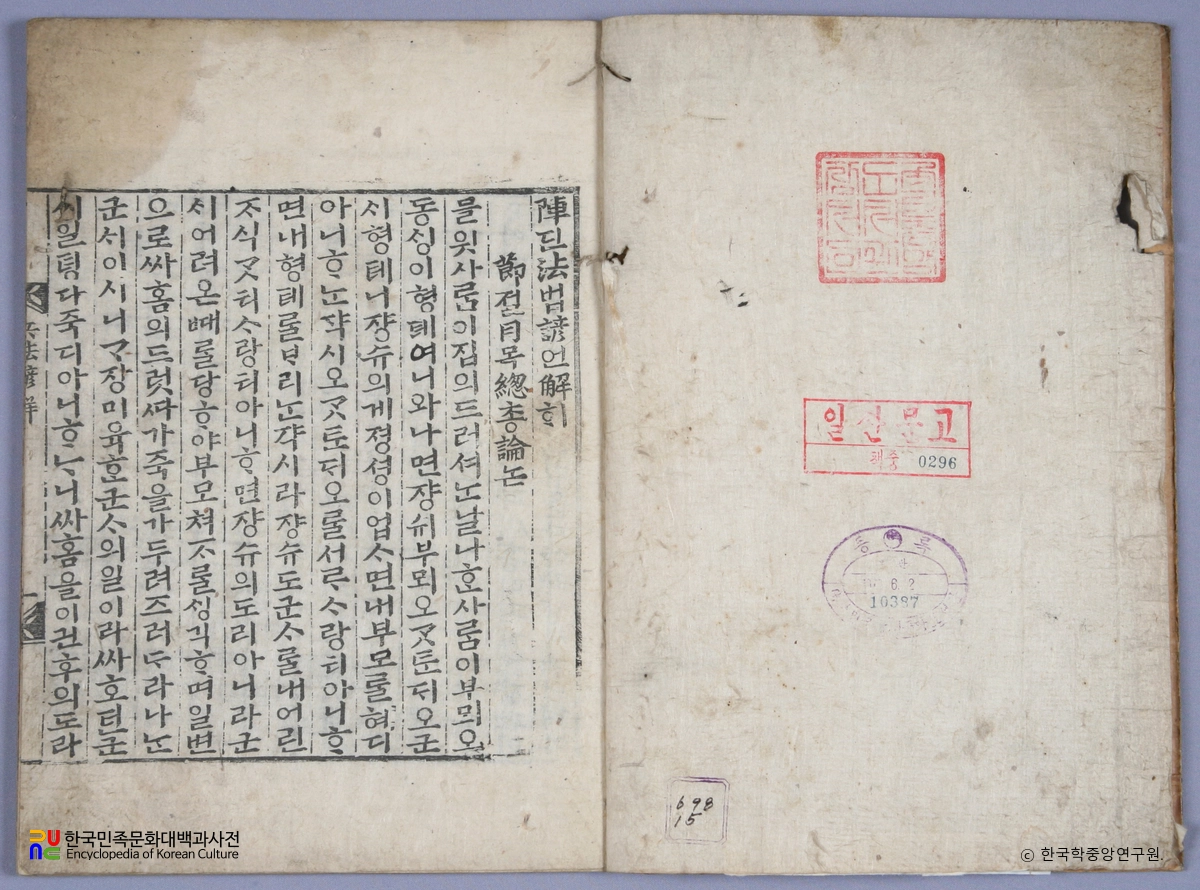 陣딘法법諺언解ᄒᆡ
節졀目목總총論논
믈읫사ᄅᆞᆷ이집의드러셔ᄂᆞᆫ날나ᄒᆞᆫ사ᄅᆞᆷ이부뫼오
동ᄉᆡᆼ이형뎨여니와나면쟝쉬부뫼오ᄀᆞᆺᄐᆞᆫ뎌오군
시형뎨니쟝슈의게졍셩이업ᄉᆞ면내부모ᄅᆞᆯ혀디
아니ᄒᆞᄂᆞᆫ쟉시오ᄀᆞᆺᄐᆞᆫ뎌오ᄅᆞᆯ서ᄅᆞᄉᆞ랑티아니ᄒᆞ
면내형뎨ᄅᆞᆯᄇᆞ리ᄂᆞᆫ쟉시라쟝슈도군ᄉᆞᄅᆞᆯ내어린
ᄌᆞ식ᄀᆞᆺ티ᄉᆞ랑티아니ᄒᆞ면쟝슈의도리아니라군
시어려온ᄣᅢᄅᆞᆯ당ᄒᆞ야부모쳐ᄌᆞᄅᆞᆯᄉᆡᆼ각ᄒᆞ며일변
으로싸홈의드럿ᄯᅡ가죽을가두려즈러ᄃᆞ라나ᄂᆞᆫ
군시이시니ᄀᆞ장미육ᄒᆞᆫ군ᄉᆞ의일이라싸호던군
시일뎡다죽디아니ᄒᆞᄂᆞ니싸홈을이귄후의도라
兵法諺解
일신문고
책중 0296
등 록
6. 2
10387
698
15
한국민족문화대백과사전
Encyclopedia of Korean Culture
© 한국학중앙연구원.